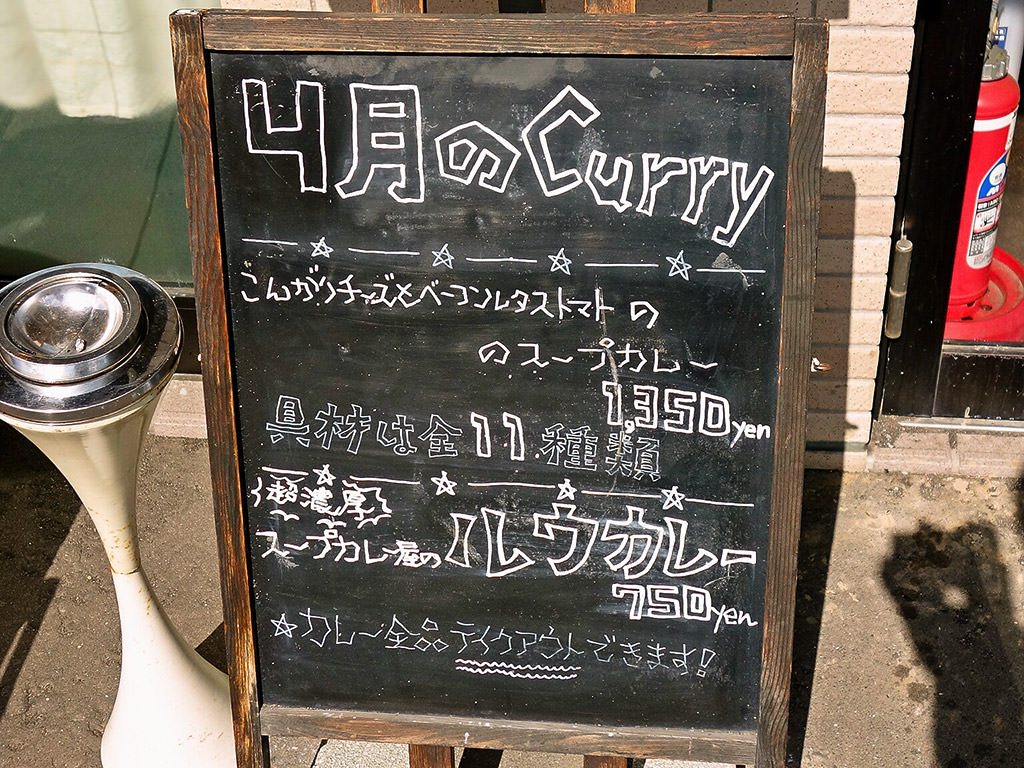 4月のCurry
こんがりチーズとベーコンレタストマトの
のスープカレー
1,350yen
具材は全11種類
超濃厚
スープカレー屋のルウカレー
750yen
☆カレー全品テイクアウトできます!